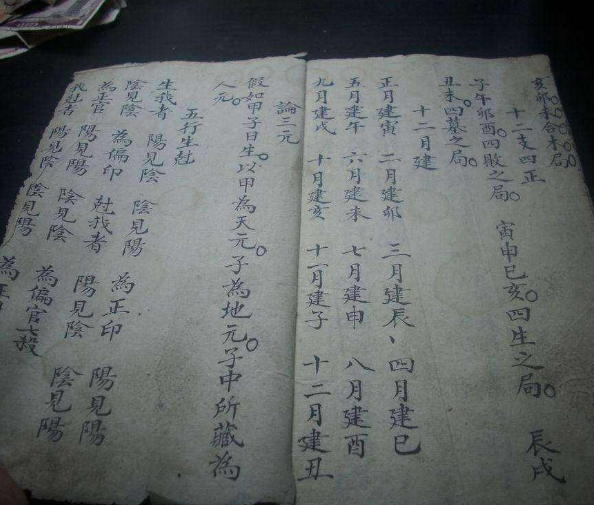 亥卯未合木局
十二支四正
子午卯酉。四敗之局。寅申巳亥。四生之局。辰戌
丑未。四墓之局。
十二月建
正月建寅 二月建卯 三月建辰、四月建巳
五月建午 六月建未 七月建申 八月建酉
九月建戌 十月建亥 十一月建子 十二月建丑
論三元
假如甲子日生。以甲為天元。子為地元。子中所藏為
人元。
五行生尅
生我者 陽見陰 陰見陽 為正印 陽見陽
陰見陰 為偏印 尅我者 陽見陰 陰見陽
為正官 陽見陽 陰見陰 為偏官七殺
我尅者 陽見陰 陰見陽 為正